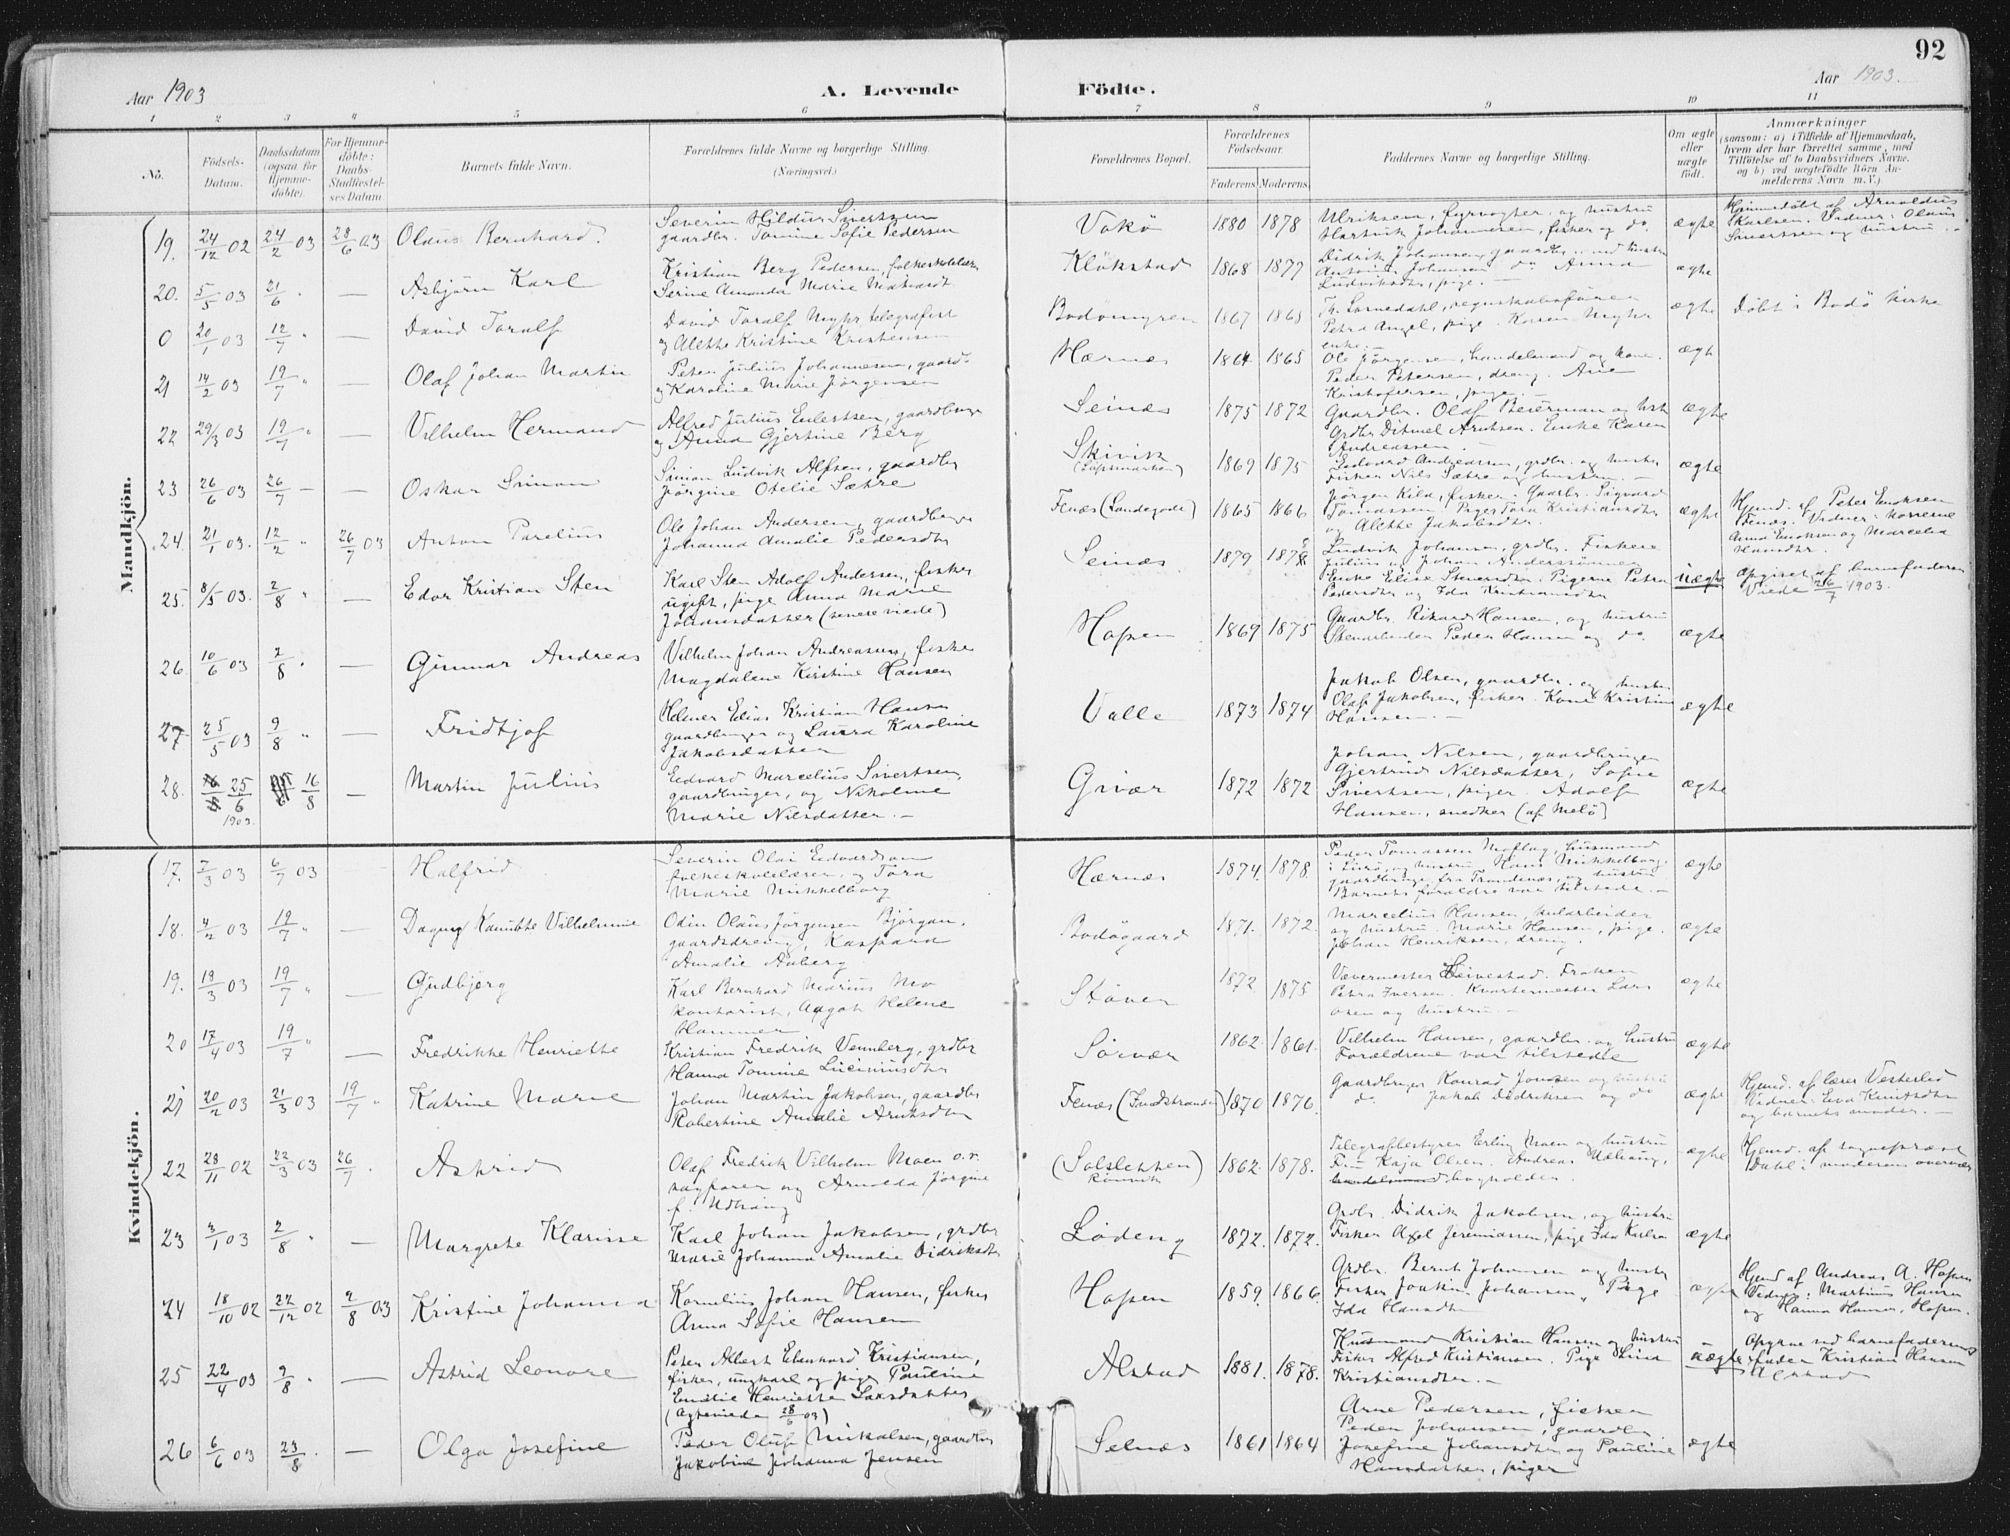 92
Aar 1903
A. Levende
Födte.
Aar 1903.
1 2 3 4 5 6 7 8 9 10 11
No.
Födsels-
Datum.
Daabsdatum
(ogsaa for
Hjemme-
döbte).
For Hjemme-
döbte:
Daabs-
Stadfæstel-
ses Datum
Barnets fulde Navn.
Forældrenes fulde Navne og borgerlige Stilling.
(Næringsvei.)
Forældrenes Bopæl.
Forældrenes
Födselsaar.
Faderens. Moderens.
Faddernes Navne og borgerlige Stilling.
Om ægte
eller
uægte
födt.
Anmærkninger
(saasom: a) i Tilfælde af Hjemmedaab,
hvem der har forrettet samme, med
Tilföielse af to Daabsvidners Navne.
og b) ved uægtefödte Börn An-
melderens Navn m. V.)
Mandkjön.
19. 24/12 02 24/2 03 28/6 03 Olaus Bernhard.
Severin Hildur Sivertsen
gaardbr. Tomine Sofie Pedersen
Vokö 1880 1878
Ulriksen, fyrvogter og hustru
Hartvik Johannesen, fisker og do.
ægte
Hjemmedöbt af Arnoldus
Karlsen. Vidner: Olaus
Sivertsen og hustru.
20. 5/5 03 21/6 " — Asbjörn Karl
Kristian Berg Pedersen, folkeskolelærer
Serine Amanda Marie
Klökstad 1868 1877
Didrik Johansen, gaardbr. med hustru
Antonius Johansen do. Anna
Ludviksdtr, pige. —
ægte
0 20/1 03 12/7 " — David Toralf
David Toralf Myhr telegrafist
og Alette Kristine Kristensen
Bodömyren 1867 1863
Th. regnskabsförer
Petra Angel, pige. Karen Myhr
enke. —
ægte
Döbt i Bodö kirke
21 14/2 03 19/7 " — Olaf Johan Martin
Peter Julius Johannesen, gaardb.
og Karoline Marie Jörgensen
Hærnes 1864 1865
Ole Jörgensen, handelsmand og kone.
Peder Petersen, dreng. Ane
Kristofersen, pige. —
ægt
22 29/3 03 19/7 " — Vilhelm Hermand
Alfred Julius gaardbruger
og Anna Gjertine Berg
Seines 1875 1872
Gaardbr. Olaf Beierman og hst
Grdbr Ditmel Arntsen. Enke Karen
Andreassen —
ægte
23 26/6 03 26/7 — — Oskar Simon
Simon Ludvik Alfsen, gaardbr
Jörgine Otelie Sætre
Skivik
(Löpsmarken) 1869 1875
Edvard Andreassen, grdbr. og hustru,
Fisker Nils Sætre og hustru. —
ægte
24. 21/1 03. 12/2 " 26/7 03 Anton Parelius
Ole Johan Andersen, gaardbruger
Johanna Amalie Pedersdtr
Fenes (Landegode) 1865 1866
Jörgen Kild, fisker. Gaardbr. Sigvard
Tomassen. Piger Tora Kristiansdtr
og Alette Jakobsdtr.
ægte
Hjmd. af Peter Enoksen
Fenes. Vidner: konerne
Anna Enoksen og Marcelia
Hansdtr.
25. 8/5 03. 2/8 " — Edor Kristian Sten
Karl Sten Adolf Andersen, fisker
ugift, pige Anna Marie
Johansdatter (senere viede)
Seines 1879
Ludvik Johansen, grdbr. Fiskere
Julius og Johan Anderssönner
Enke Elise Sivertsdtr. Pigerne Petra
Pedersdtr og Ida Kristiansdtr
uægte
Opgivet af barnefaderen
Viede 26/7 1903.
26 10/6 03 2/8 " — Gunnar Andreas
Vilhelm Johan Andreassen, fisker
Magdalene Kristine Hansen
Hopen 1869 1875
Gaardbr. Rikard Hansen, og hustru
Stenarbeider Peder Hansen og do.
ægte
27 25/5 03 9/8 " — Fridtjof
Helmer Edias Kristian Hansen
gaardbruger og Laura Karoline
Jakobsdatter
Valle 1873 1874
Jakob Olsen, gaardbr. og hustru
Olaf Jakobsen, fisker. Kone Kristine
Hansen. —
ægte
28. 25/6 1903. 16/8 — Martin Julius
Edvard Marcelius Sivertsen,
gaardbruger, og Nikoline
Marie Nilsdatter. —
Givær 1872 1872
Johan Nilsen, gaardbruger
Gjertrud Nilsdatter, Sofie
Sivertsen, piger. Adolf
Hansen, snedker (af Melö)
ægte
Kvindekjön.
17. 7/3 03 6/7 03 Halfrid
Severin Olai Edvardsen
folkeskolelærer, og Tora
Marie Mikkelborg
Hærnes 1874. 1878.
Peder Tomassen Moflag, husmand
i Lurö, og hustru. Hans Mikkelborg,
gaardbruger fra Trondenes, og hustru
Barnets foreldre var tilstede. —
ægte
18. 4/2 03 19/7 " — Dagny Kanutte Vilhelmine
Odin Olaus Jörgensen Björgan,
gaardsdreng, Kaspara
Amalie Aaberg
Bodögaard 1871. 1872.
Marcelius Hansen,
og hustru. Marie Hansen, pige.
Johan Henriksen, dreng.
ægte
19. 18/3 03 19/7 " — Gudbjörg
Karl Bernhard Marius Mo
kontorist, Aagot Helene
Hammer
Stöver 1872 1875
Vævermester Leivestad. Fröken
Petra Iversen. Kvartermester Lars
og hustru. —
ægte
20 17/4 03 19/7 " — Fredrikke Henriette
Kristian Fredrik Vennberg, grdbr
Hanna Tomine
Sörvær 1862. 1861.
Vilhelm Hansen, gaardbr. og hustru
Forældrene var tilstede
ægte
21 20/2 03 21/3 03 19/7 " Katrine Marie
Johan Martin Jakobsen, gaardbr
Robertine Amalie Arntsdtr
Fenes (Sundstranden) 1870 1876.
Gaardbruger Konrad Jonsen og hustru
do Jakob Didriksen og do
ægte
Hjmd. af lærer Vesterlid
Vidner: Eva Knutsdtr
og barnets moder. —
22 28/11 02 22/3 03 26/7 . Astrid
Olaf Fredrik Vilhelm Moen o.r.
sagförer og Arnolda Jörgine
f. Udhaug
(Solsletten)
Rönvik 1862. 1878.
Telegrafbestyrer Erling Moen og hustru
Fru Kaja Olsen. Andreas Udhaug,
bogholder.
ægte
Hjmd. af sogneprest
Dahl i moderens overvær
23 3/1 03 2/8 " — Margrete Klarisse
Karl Johan Jakobsen, grdbr
Marie Johanna Amalie Didriksdtr
Löding 1872. 1872.
Grdbr. Didrik Jakobsen, og hustru
Fisker Axel Jeremiassen, pige Ida Karlsen
ægte
24 18/10 02 22/12 02 2/8 03 Kristine Johanna
Kornelius Johan Hansen, fisker
Anna Sofie Hansen
Hopen 1859. 1866.
Grdbr. Bernt Johansen og hustru
Fisker Joakim Johansen. Pige
Ida Hansdtr
ægte
Hjmd af Andreas A. Hopen
Vidner: Martinus Hansen
og Hanna Hansen, Hopen.
25 22/4 03 2/8 " — Astrid Leonore
Peter Albert Edenhard Kristiansen,
fisker, ungkarl og pige Pauline
Emilie Henriette Larsdatter
(Ægteviede 28/6 03)
Alstad 1881. 1878.
Husmand Kristian Hansen og hustru
Fisker Alfred Kristiansen. Pige Lina
Kristiansdtr. —
uægte
Opgivne ved barnefaderens
fader Kristian Hansen
Alstad
26 6/6 03 23/8 . — Olga Josefine
Peder Oluf Nikolsen, gaardbr
Jakobine Johanna Jensen
Selnæs 1861 1864
Arne Pedersen, fisker
Peder Johansen, gaardbr.
Josefine Johansdtr og Pauline
Hansdatter, piger
ægte